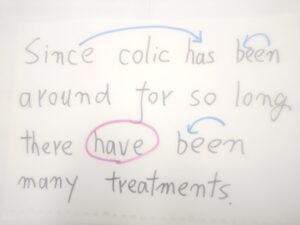 Since colic has been
around for so long
there have been
many treatments.